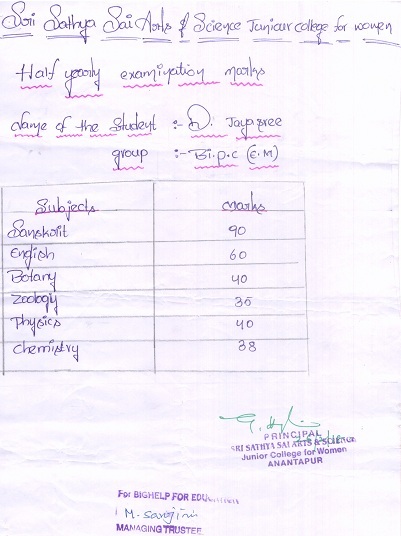 Sri Sathya Sai Arts & Science Junior college for women
Half yearly examination marks
Name of the Student :- D. Jayasree
group :- Bi.p.c (E.M)
Subjects marks
Sanskrit 90
English 60
Botany 40
Zoology 35
Physics 40
Chemistry 38
PRINCIPAL
SRI SATHYA SAI ARTS & SCIENCE
Junior College for Women
ANANTAPUR
For BIGHELP FOR EDUCATION
M. Sarojini
MANAGING TRUSTEE